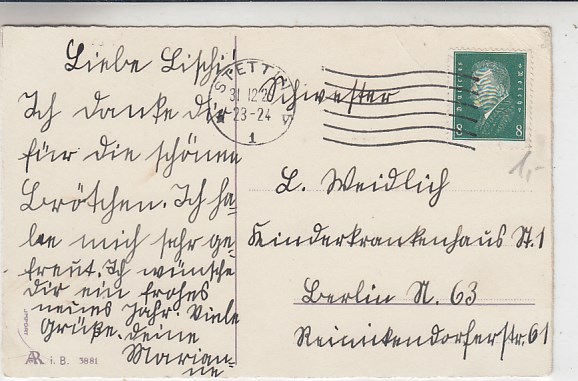 Liebe Lischi!
Ich danke dir
für die schönen
Brötchen. Ich ha-
be mich sehr ge-
freut. Ich wünsche
dir ein frohes
neues Jahr. Viele
Grüße. deine
Marian-
ne
AR i. B. 3881
STETTIN
31 12 2
23-24
1
Deutsches Reich
8 8
1,-
Schwester
L. Weidlich
Kinderkrankenhaus St. 1
Berlin N. 63
Reinikendorferstr. 61